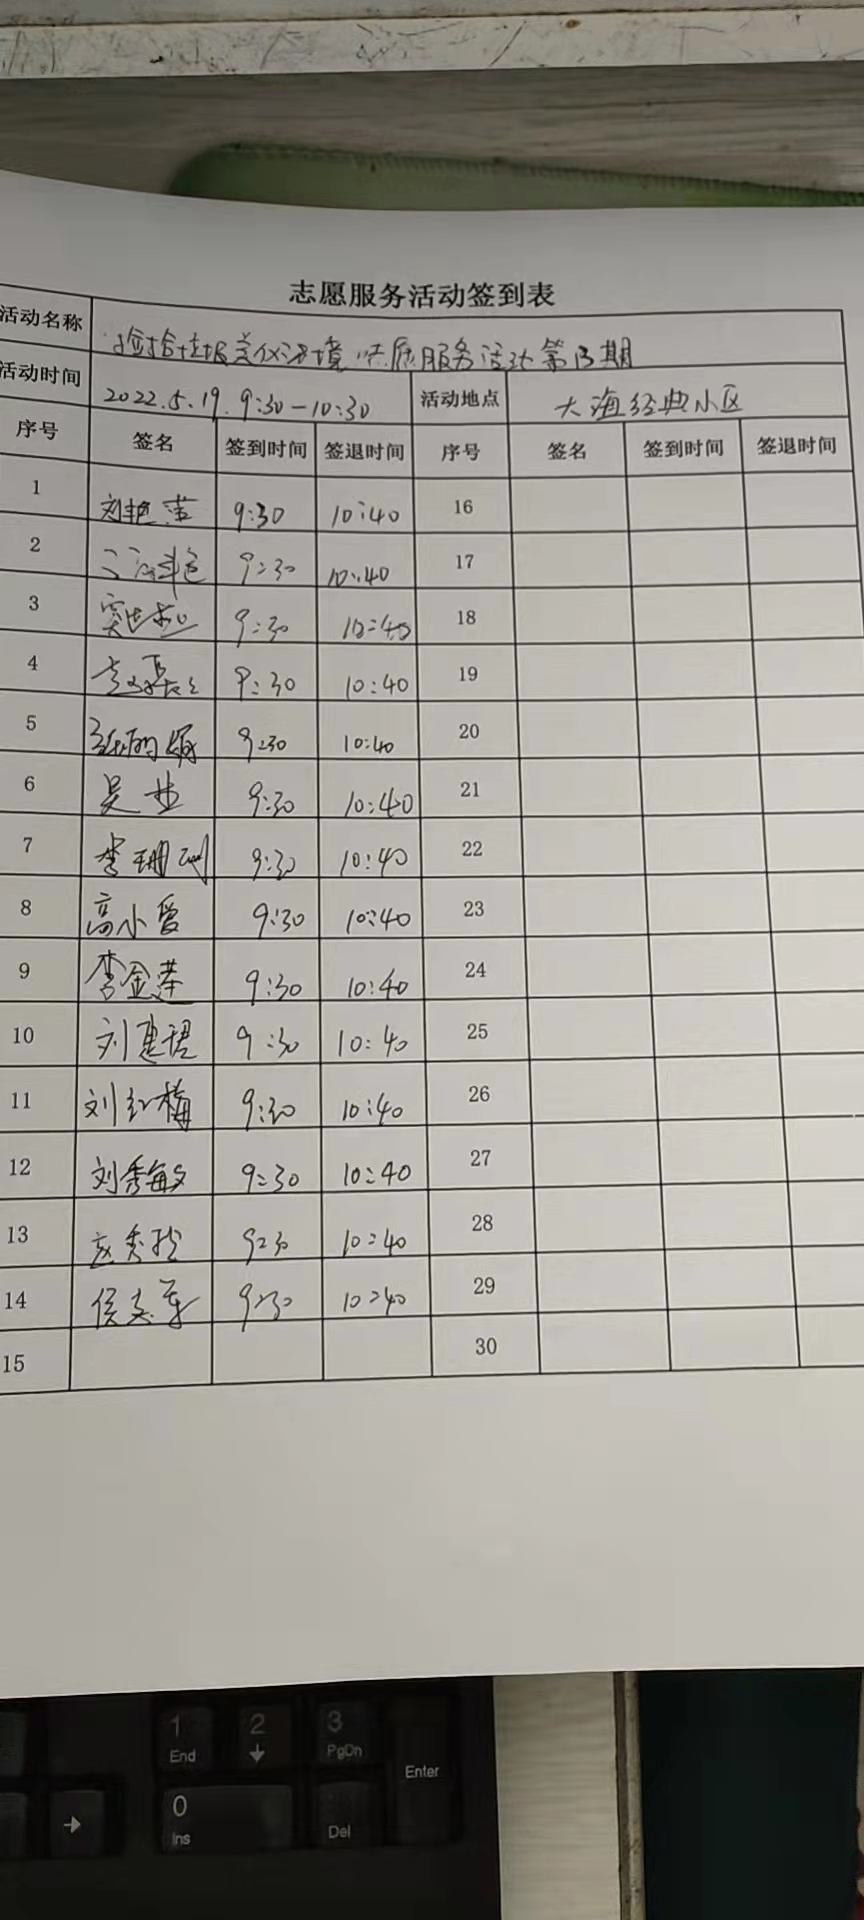 志愿服务活动签到表
活动名称 捡拾垃圾美化环境志愿服务活动第13期
活动时间 2022.5.19. 9:30-10:30 活动地点 大海经典小区
序号 签名 签到时间 签退时间 序号 签名 签到时间 签退时间
1 刘艳萍 9:30 10:40 16
2 9:30 10:40 17
3 9:30 10:40 18
4 9:30 10:40 19
5 9:30 10:40 20
6 吴 9:30 10:40 21
7 李珊珊 9:30 10:40 22
8 高小爱 9:30 10:40 23
9 李金莲 9:30 10:40 24
10 刘惠珺 9:30 10:40 25
11 刘红梅 9:30 10:40 26
12 刘秀敏 9:30 10:40 27
13 9:30 10:40 28
14 9:30 10:40 29
15 30
1 2 3
End PgDn
Enter
0
Ins Del